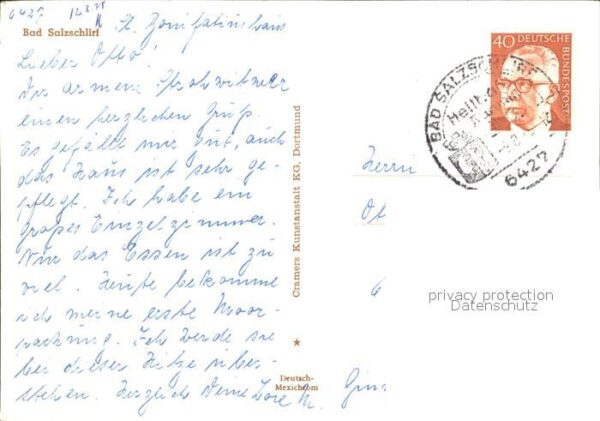 6427
St. Bonifatiushaus
Bad Salzschlirf
Lieber Otto!
Dir armen Strohwitwer
einen herzlichen Gruß.
Es gefällt mir gut, auch
das Haus ist sehr ge-
pflegt. Ich habe ein
großes Einzelzimmer.
Nur das Essen ist zu
viel. Heute bekomme
ich meine erste Moor-
packung. Ich werde sie
bei dieser Hitze über-
stehen. Herzlich Deine Lore
Cramers Kunstanstalt KG, Dortmund
Deutsch-
Mexichrom
40 DEUTSCHE
BUNDESPOST
BAD SALZSCHLIRF
6427
Herrn
Ot
6
privacy protection
Datenschutz